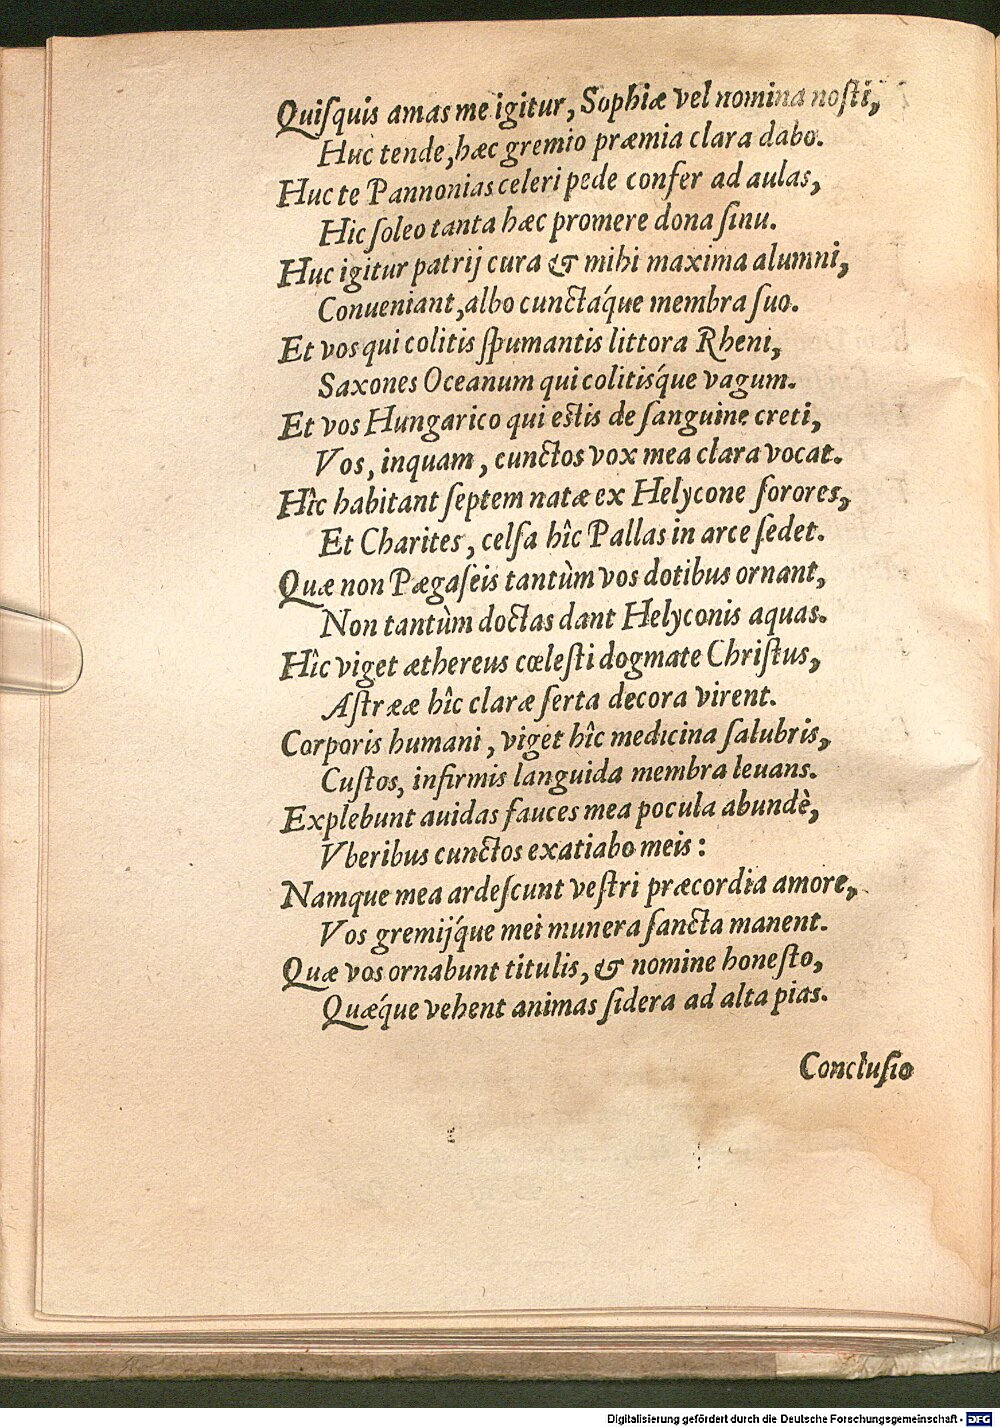 Quiſquis amas me igitur, Sophiæ vel nomina noſti,
Huc tende, hæc gremio præmia clara dabo.
Huc te Pannonias celeri pede confer ad aulas,
Hic ſoleo tanta hæc promere dona ſinu.
Huc igitur patrij cura & mihi maxima alumni,
Conueniant, albo cunctáque membra ſuo.
Et vos qui colitis ſpumantis littora Rheni,
Saxones Oceanum qui colitisq́ue vagum.
Et vos Hungarico qui eſtis de ſanguine creti,
Vos, inquam, cunctos vox mea clara vocat.
Hîc habitant ſeptem natæ ex Helycone ſorores,
Et Charites, celſa hîc Pallas in arce ſedet.
Quæ non Pægaſeis tantùm vos dotibus ornant,
Non tantùm doctas dant Helyconis aquas.
Hîc viget æthereus cœleſti dogmate Chriſtus,
Aſtrææ hîc claræ ſerta decora virent.
Corporis humani, viget hîc medicina ſalubris,
Cuſtos, infirmis languida membra leuans.
Explebunt auidas fauces mea pocula abundè,
Vberibus cunctos exatiabo meis:
Namque mea ardeſcunt veſtri præcordia amore,
Vos gremijq́ue mei munera ſancta manent.
Quæ vos ornabunt titulis, & nomine honeſto,
Quæq́ue vehent animas ſidera ad alta pias.
Concluſio
Digitalisierung gefördert durch die Deutsche Forschungsgemeinschaft - DFG